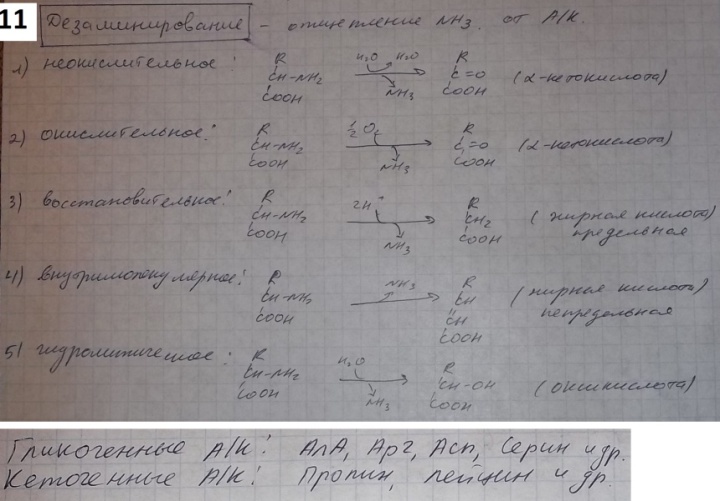 11
Дезаминирование - отщепление NH3 от А/К.
1) неокислительное: R CH-NH2 COOH H2O H2O NH3 R C=O COOH (α-кетокислота)
2) окислительное: R CH-NH2 COOH ½O2 NH3 R C=O COOH (α-кетокислота)
3) восстановительное: R CH-NH2 COOH 2H+ NH3 R CH2 COOH (жирная кислота) предельная
4) внутримолекулярное: R CH-NH2 COOH NH3 R CH = CH COOH (жирная кислота) непредельная
5) гидролитическое: R CH-NH2 COOH H2O NH3 R CH-OH COOH (оксикислота)
Гликогенные А/К: АлА, Арг, Асп, Серин и др.
Кетогенные А/К: Пролин, лейцин и др.